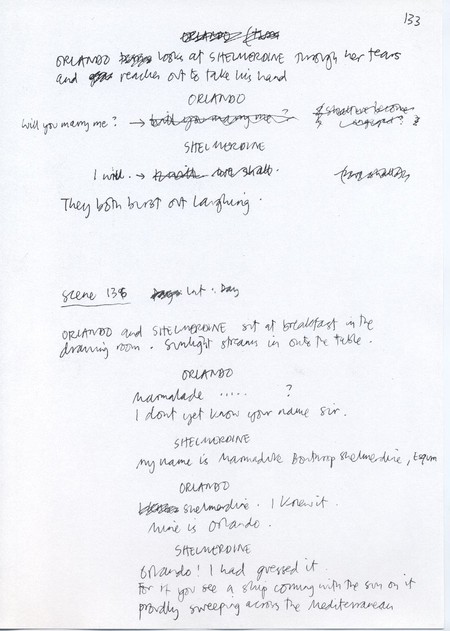 133
ORLANDO
ORLANDO looks at SHELMERDINE through her tears
and reaches out to take his hand
ORLANDO
Will you marry me? → Will you marry me?
SHELMERDINE
I will. →
They both burst out laughing.
Scene 138 Int. Day
ORLANDO and SHELMERDINE sit at breakfast in the
drawing room. Sunlight streams in onto the table.
ORLANDO
Marmalade ..... ?
I dont yet know your name sir.
SHELMERDINE
My name is Marmaduke Bonthrop Shelmerdine, Esquire
ORLANDO
Shelmerdine. I knew it.
Mine is Orlando.
SHELMERDINE
Orlando! I had guessed it.
For if you see a ship coming with the sun on it
proudly sweeping across the Mediterranean